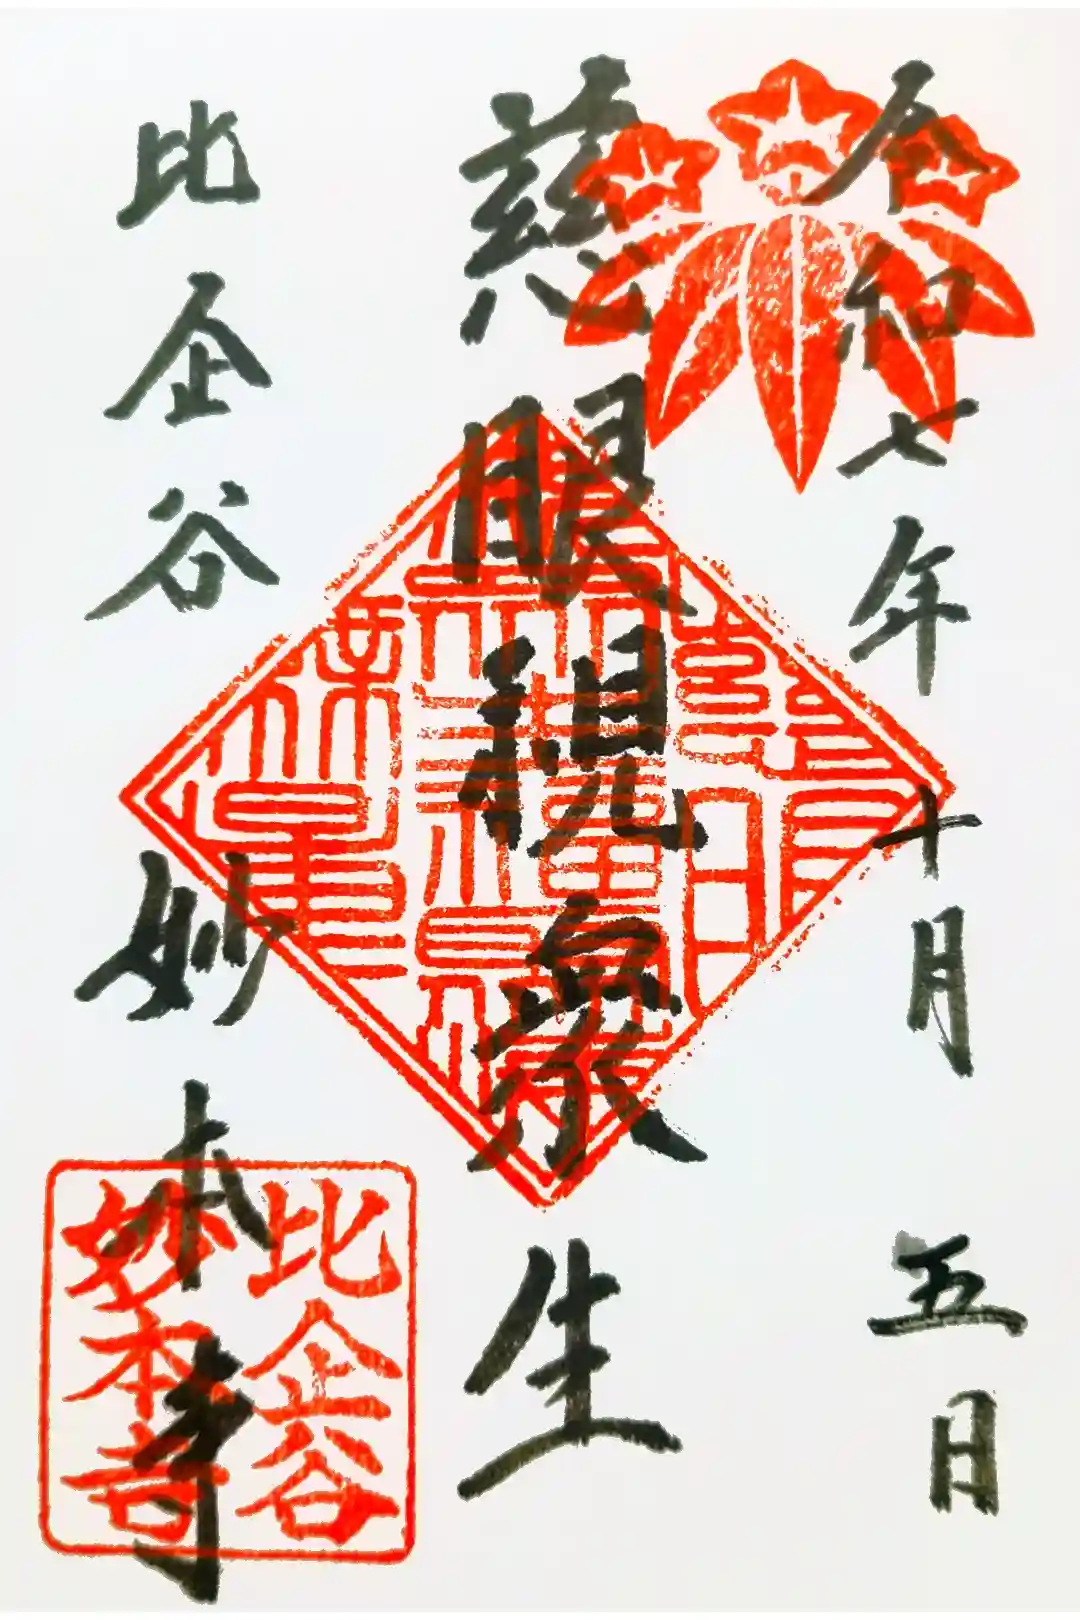 令和七年十月五日
慈眼視衆生
比企谷妙本寺
比企谷
妙本寺